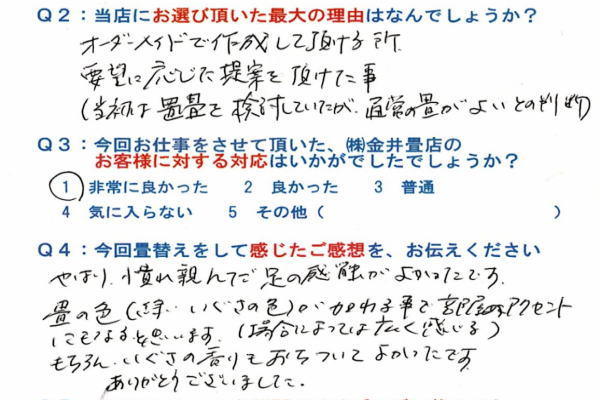 Q2:当店にお選び頂いた最大の理由はなんでしょうか?
オーダーメイドで作成して頂ける所.
要望に応じた提案を頂けた事
(当初は置畳を検討していたが、通常の畳がよいとの
Q3:今回お仕事をさせて頂いた、㈱金井畳店の
お客様に対する対応はいかがでしたでしょうか?
1 非常に良かった 2 良かった 3 普通
4 気に入らない 5 その他( )
Q4:今回畳替えをして感じたご感想を、お伝えください
やはり、慣れ親んだ足の感触がよかったです.
畳の色(いぐさの色)がかわる事で部屋のアクセント
にもなると思います. (場合によっては広く感じる)
もちろん、いぐさの香りもおちついてよかったです.
ありがとうございました.